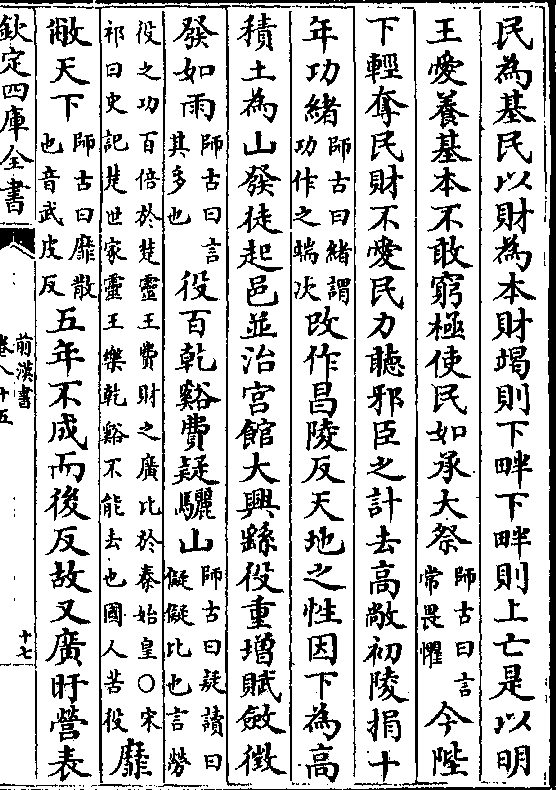 民為基民以財為本財竭則下畔下畔則上亡是以明
王愛養基本不敢窮極使民如承大祭師古曰言常畏懼今陛
下輕奪民財不愛民力聽邪臣之計去高敞初陵捐十
年功緒師古曰緒謂功作之端次改作昌陵反天地之性因下為高
積土為山發徒起邑並治宫館大興繇役重增賦斂徵
發如雨師古曰言其多也役百乾谿費疑驪山師古曰疑讀曰儗儗比也言勞
役之功百倍於楚靈王費財之廣比於秦始皇○宋祁曰史記楚世家靈王樂乾谿不能去也國人苦役靡
敝天下師古曰靡散也音武皮反五年不成而後反故又廣盱營表
欽定四庫全書
前漢書
卷八十五
十七